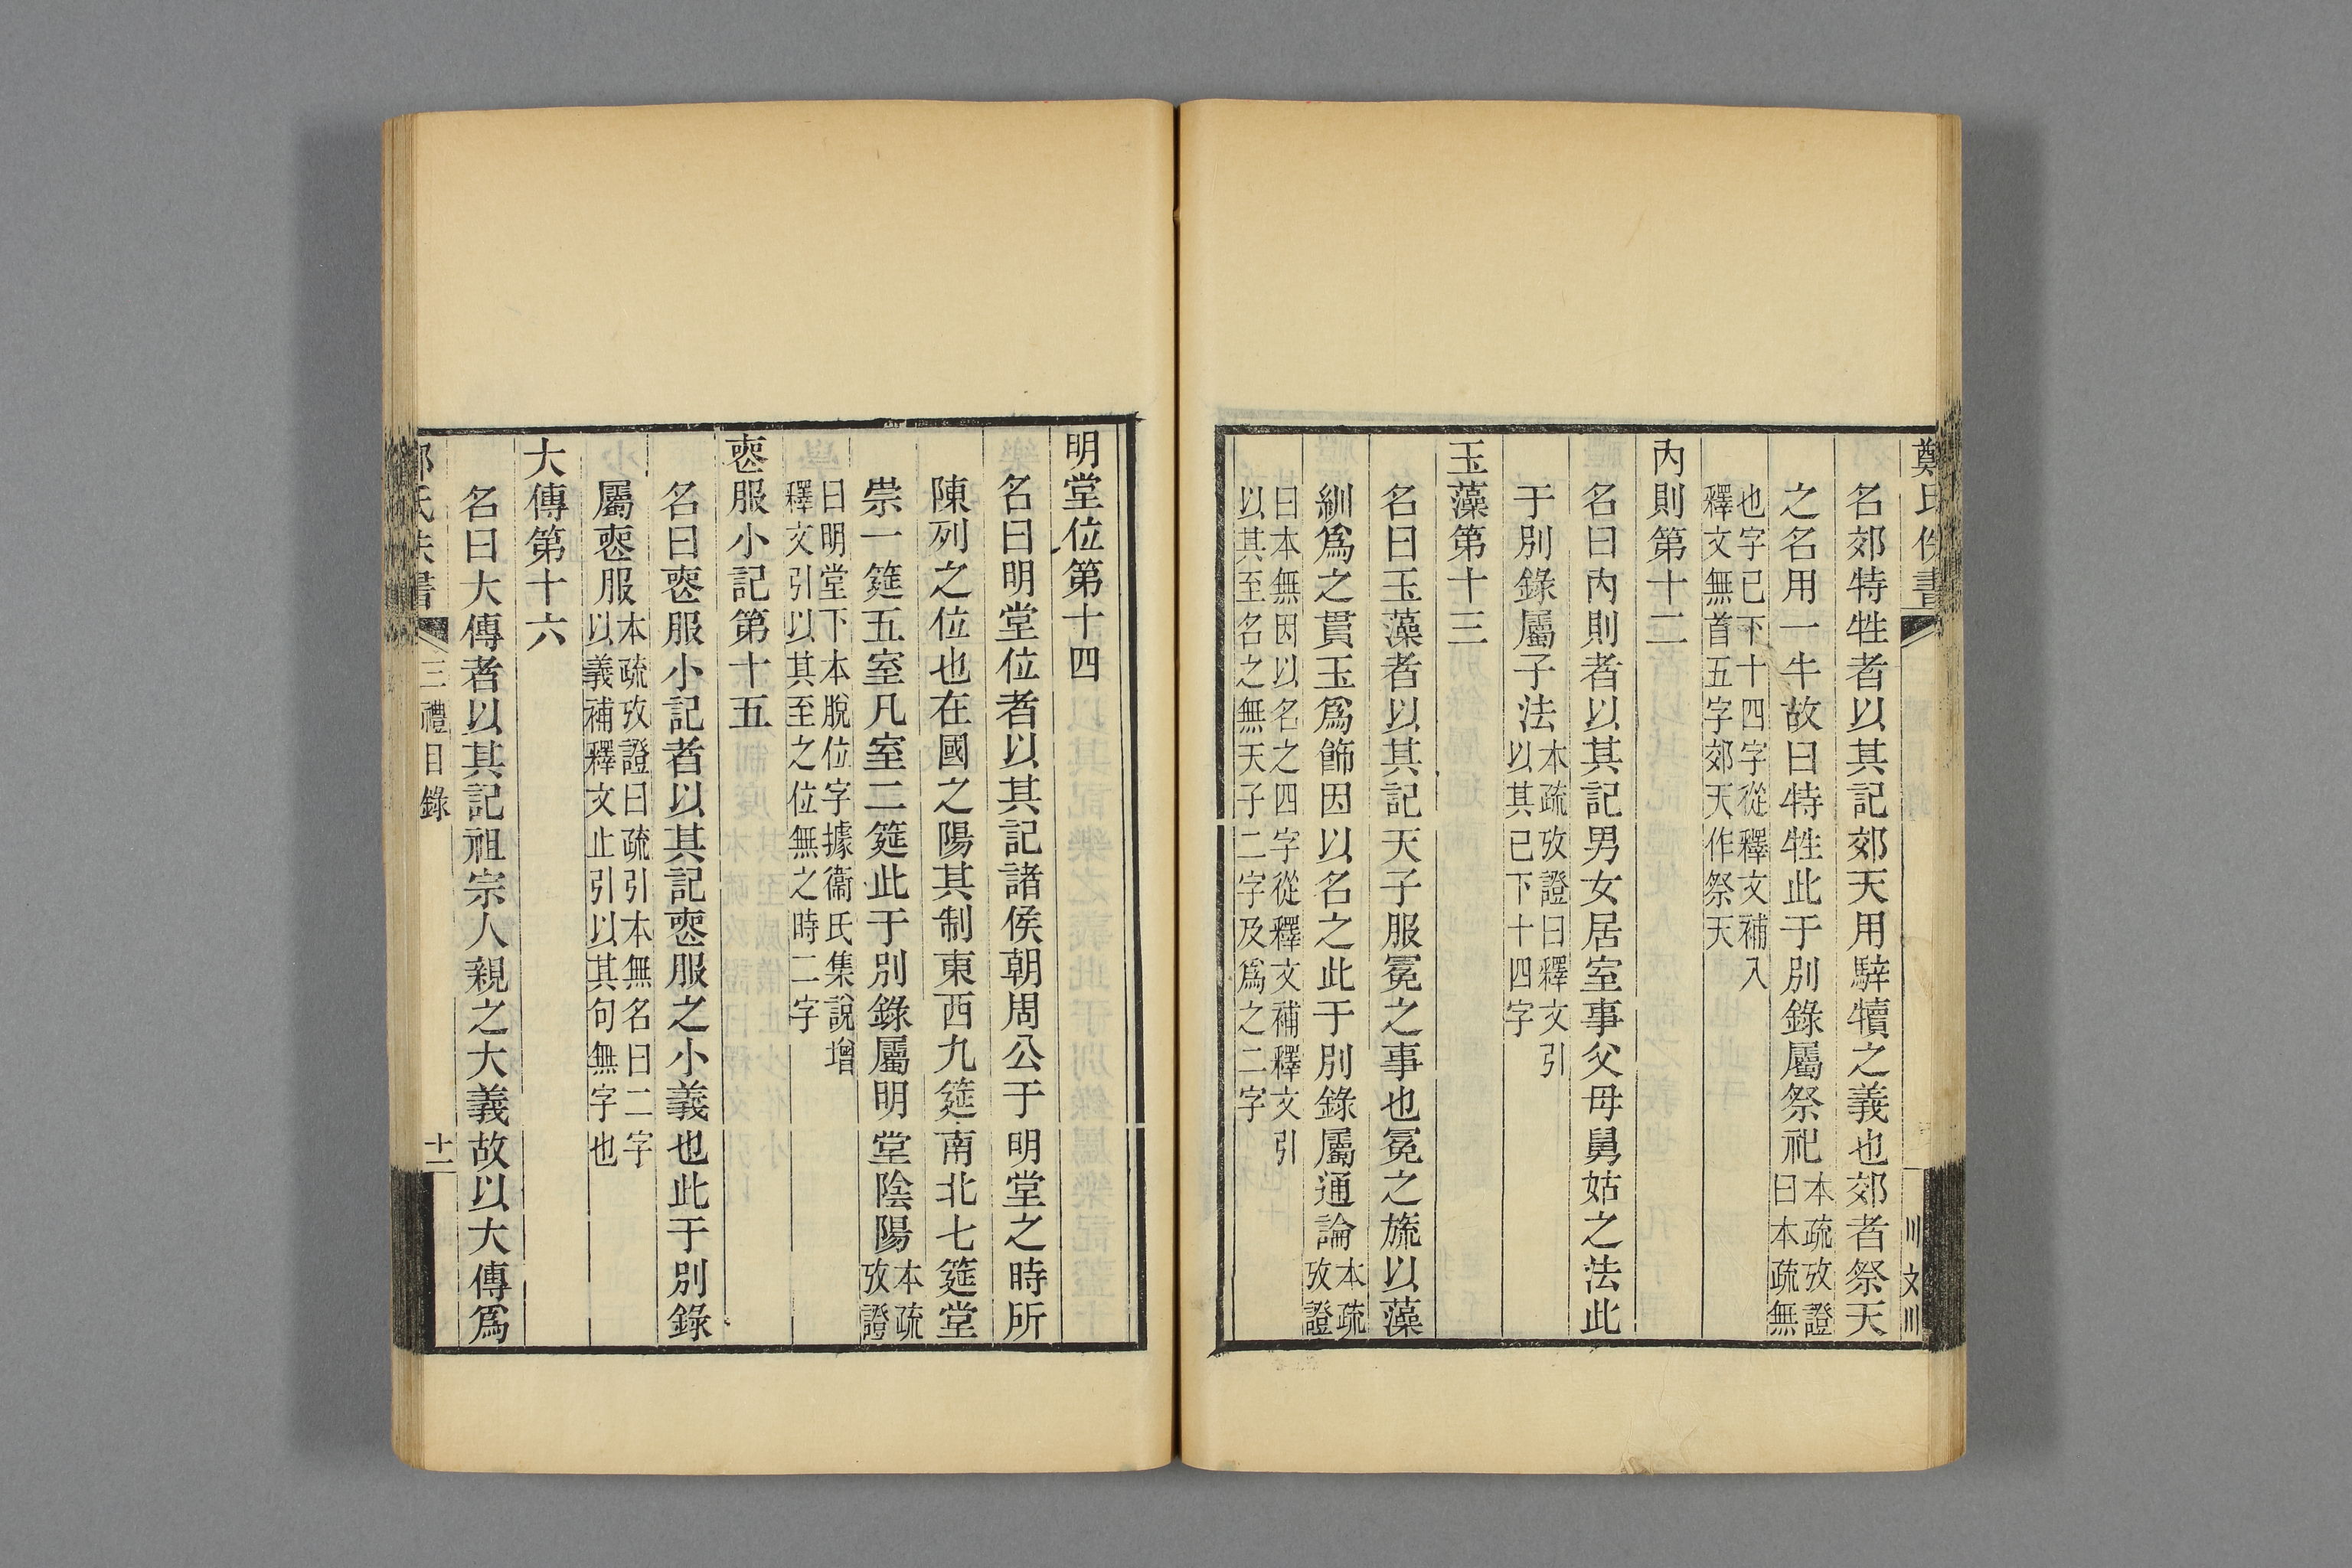 名郊特牲者以其記郊天用騂犢之義也郊者祭天
之名用一牛故曰特牲此于別錄屬祭祀本疏攷證曰本疏無
也字已下十四字從釋文補入釋文無首五字郊天作祭天
內則第十二
名曰內則者以其記男女居室事父母舅姑之法此
于別錄屬子法本疏攷證曰釋文引以其已下十四字
玉藻第十三
名曰玉藻者以其記天子服冕之事也冕之旒以藻
紃爲之貫玉爲飾因以名之此于別錄屬通論本疏攷證
曰本無因以名之四字從釋文補釋文引以其至名之無天子二字及爲之二字
明堂位第十四
名曰明堂位者以其記諸侯朝周公于明堂之時所
陳列之位也在國之陽其制東西九筵南北七筵堂
崇一筵五室凡室二筵此于別錄屬明堂陰陽本疏攷證
曰明堂下本脫位字據衞氏集說增釋文引以其至之位無之時二字
喪服小記第十五
名曰喪服小記者以其記喪服之小義也此于別錄
屬喪服本疏攷證曰疏引本無名曰二字以義補釋文止引以其句無字也
大傳第十六
名曰大傳者以其記祖宗人親之大義故以大傳爲
三禮目錄
十二